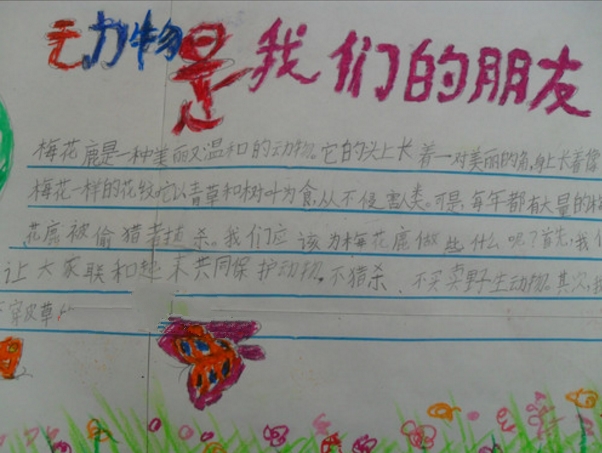 动物是我们的朋友
梅花鹿是一种美丽又温和的动物。它的头上长着一对美丽的角,身上长着像
梅花一样的花纹它以青草和树叶为食,从不侵害人类。可是,每年都有大量的梅
花鹿被偷猎者捕杀。我们应该为梅花鹿做些什么呢?首先,我们
让大家联和起来共同保护动物。不猎杀、不买卖野生动物。其次,我
不穿皮草